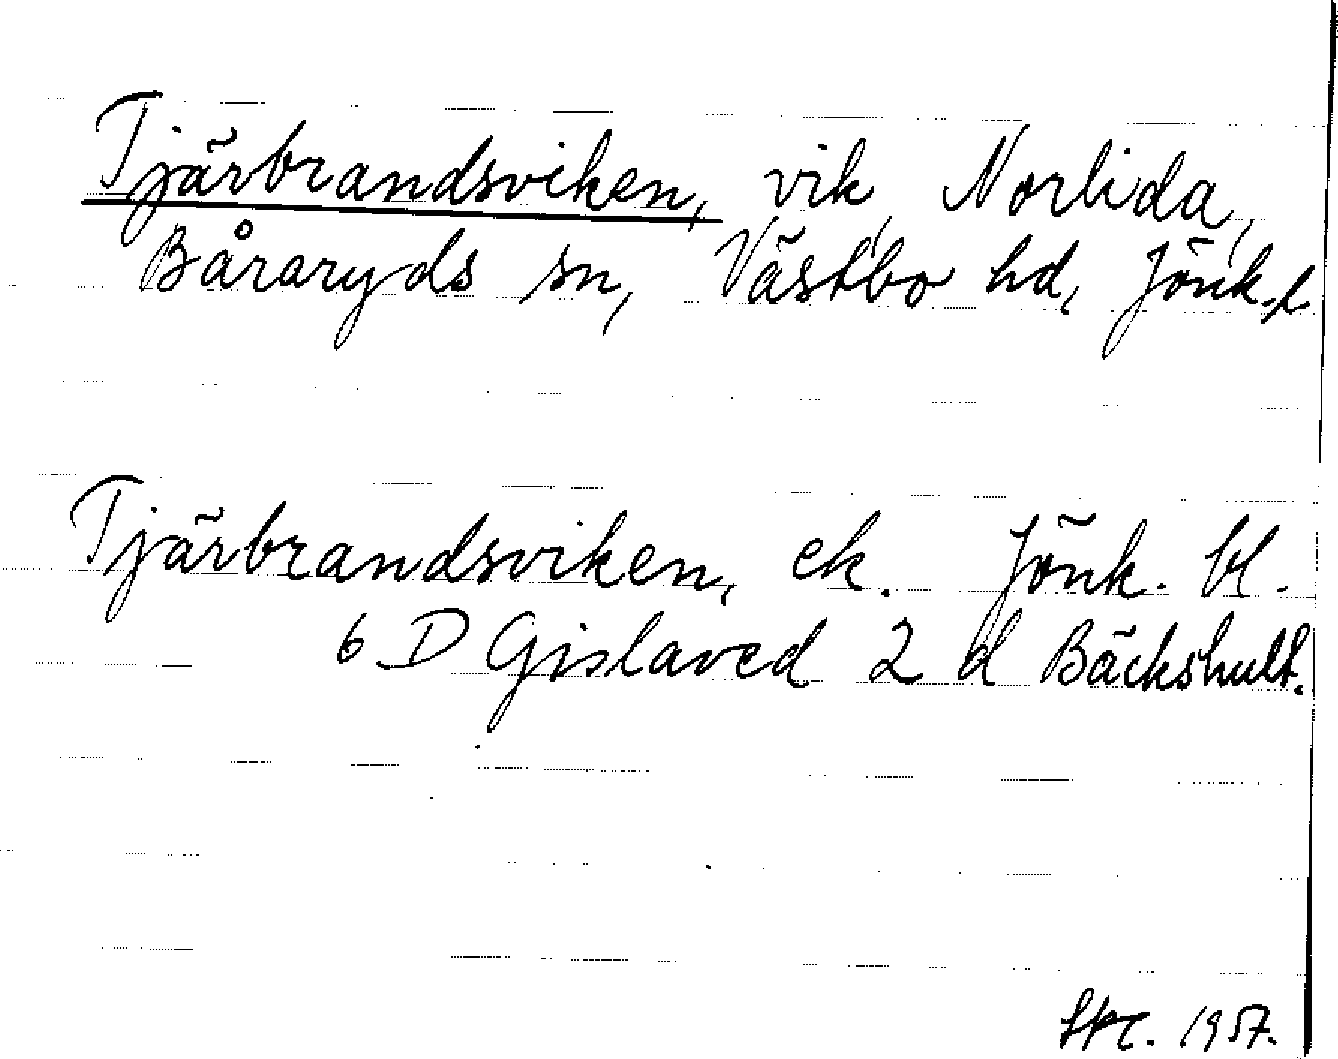 Tjärbrandsviken, vik, Norlida,
Båraryds sn, Västbo hd, Jönk.l.
Tjärbrandsviken, ek. Jönk. bl.
6 D Gislaved 2 d Bäckshult.
1957.